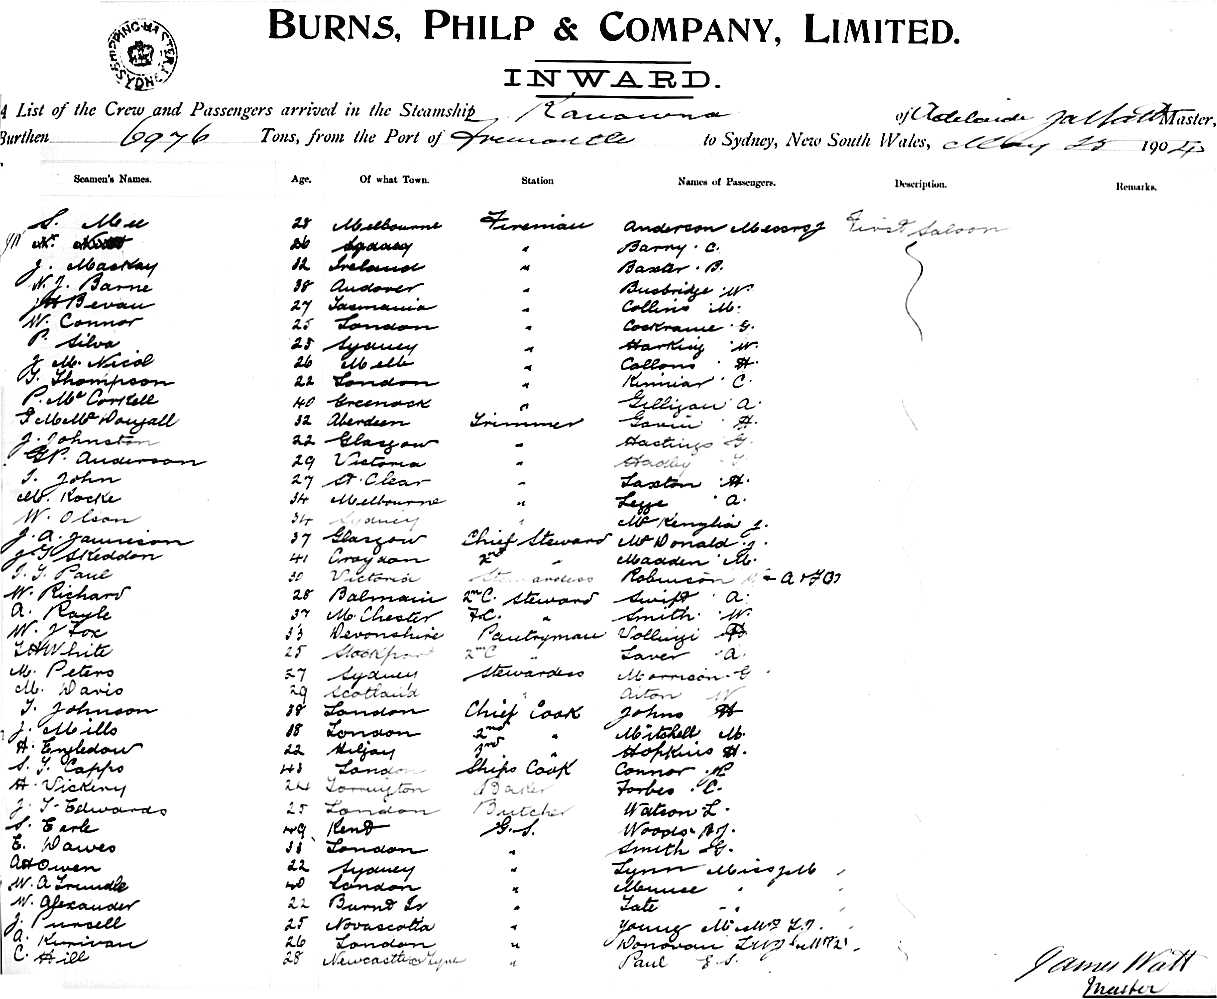 SHIPPING MASTER SYDNEY
BURNS, PHILP & COMPANY, LIMITED.
INWARD.
A List of the Crew and Passengers arrived in the Steamship Kanowna of Adelaide Master,
Burthen 6976 Tons, from the Port of Fremantle to Sydney, New South Wales, May 25 190
Seamen's Names. Age. Of what Town. Station Names of Passengers. Description. Remarks.
S. Mee 28 Melbourne Fireman Anderson Messrs J First Saloon
26 Sydney " Barry C.
J. Mackay 32 Ireland " Baxter B.
N. J. Barne 38 Andover " Busbridge W.
Bevan 27 Tasmania " Collins M.
W. Connor 25 London " Cockrame G.
P. Silva 25 Sydney " Harking W.
J. McNicol 26 Melb " Collons H.
G. Thompson 22 London " Kinniar C.
P. McCorkell 40 Greenock " Gilligan A.
McDougall 32 Aberdeen Trimmer Gavin H.
J. Johnston 22 Glasgow " Hastings G.
G P. Anderson 29 Victoria " Hadley
T. John 27 St. Clear " Laxton H.
M. Rocke 34 Melbourne " Legge A.
W. Olson 34 Sydney " J.
J. A. Jamieson 37 Glasgow Chief Steward McDonald J.
Skeddon 41 Croydon 2nd " Madden M.
Paul 30 Victoria Stewardess Robinson
W. Richard 28 Balmain 2nd C. Steward Swift A.
A. Royle 37 McChester F.C. " Smith W.
W. J Fox 33 Devonshire Pantryman H
White 25 Stockport 2nd C " Laver A.
M. Peters 27 Sydney Stewardess Morrison G
M. Davis 29 Scotland " Aiton W
T. Johnson 38 London Chief Cook Johns H
J. Mills 38 London 2nd " Mitchell M.
H. Engledow 22 3rd " Hopkins H.
S. T. Capps 43 London Ships Cook Connor
H. Vickery 24 Torrington Baker Forbes C.
J. T. Edwards 25 London Butcher Watson L.
S. Earle 49 Kent G.S. Woods
E. Dawes 38 London " Smith G.
A H Owen 22 Sydney " Lynn Miss
W. A Trundle 40 London " "
W. Alexander 22 Burnt Is " Tate "
J. Pursell 25 Novascotia " Young
A. Kinivan 26 London " Donovan
C. Hill 28 Newcastle Tyne " Paul E S.
James Watt
Master